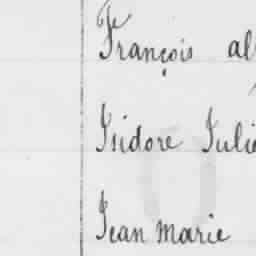 François al
Isidore Julie
Jean Marie